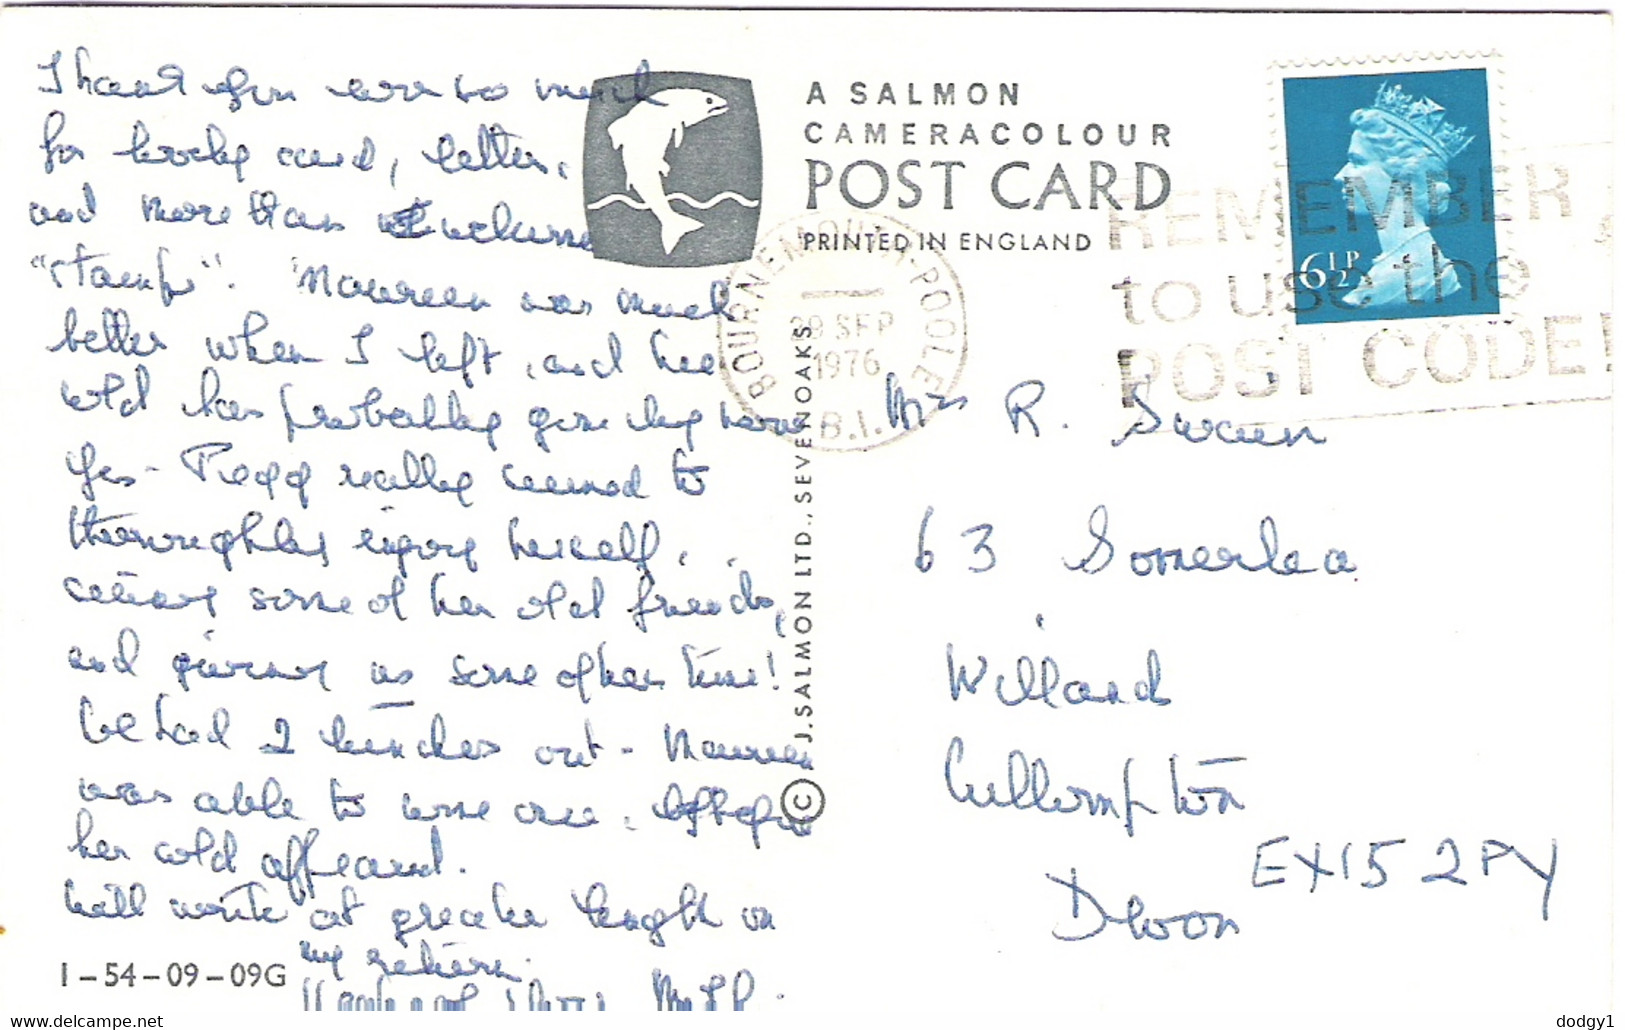 Thank you ever so much
for lovely card, letter,
and more than welcome
"stamps". Maureen was much
better when I left, and her
cold has probably gone by now
Yes - Pegg really seemed to
thoroughly enjoy herself,
seeing some of her old friends,
and giving us some of her time!
We had 2 lunches out - Maureen
was able to come once, before
her cold appeared.
Will write at greater length on
my return.
A SALMON
CAMERACOLOUR
POST CARD
PRINTED IN ENGLAND
BOURNEMOUTH-POOLE
SEP
1976
B.I.
REMEMBER
to use the
POST CODE!
6½P
J. SALMON LTD., SEVENOAKS
©
Mrs R. Swain
63 Somerlea
Willand
Cullompton
Devon
EX15 2PY
1-54-09-09G
delcampe.net
dodgy1